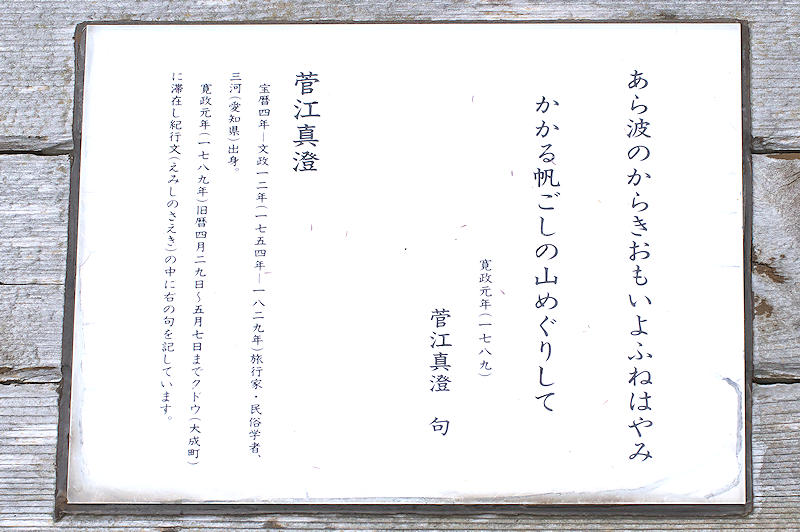 あら波のからきおもいよふねはやみ
かかる帆ごしの山めぐりして
寛政元年(一七八九)
菅江真澄　句
菅江真澄
宝暦四年―文政一二年(一七五四年―一八二九年)旅行家・民俗学者、
三河(愛知県)出身。
寛政元年(一七八九年)旧暦四月二九日～五月七日までクドウ(大成町)
に滞在し紀行文(えみしのさえき)の中に右の句を記しています。